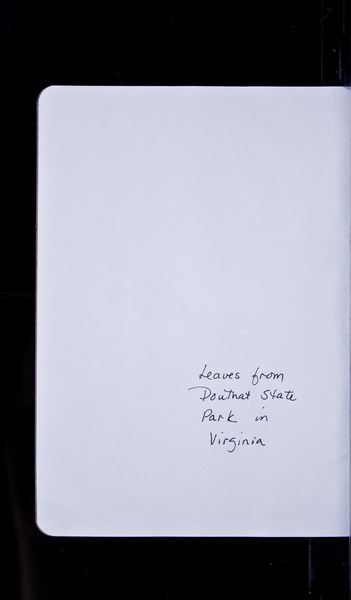 Leaves from
Douthat State
Park in
Virginia